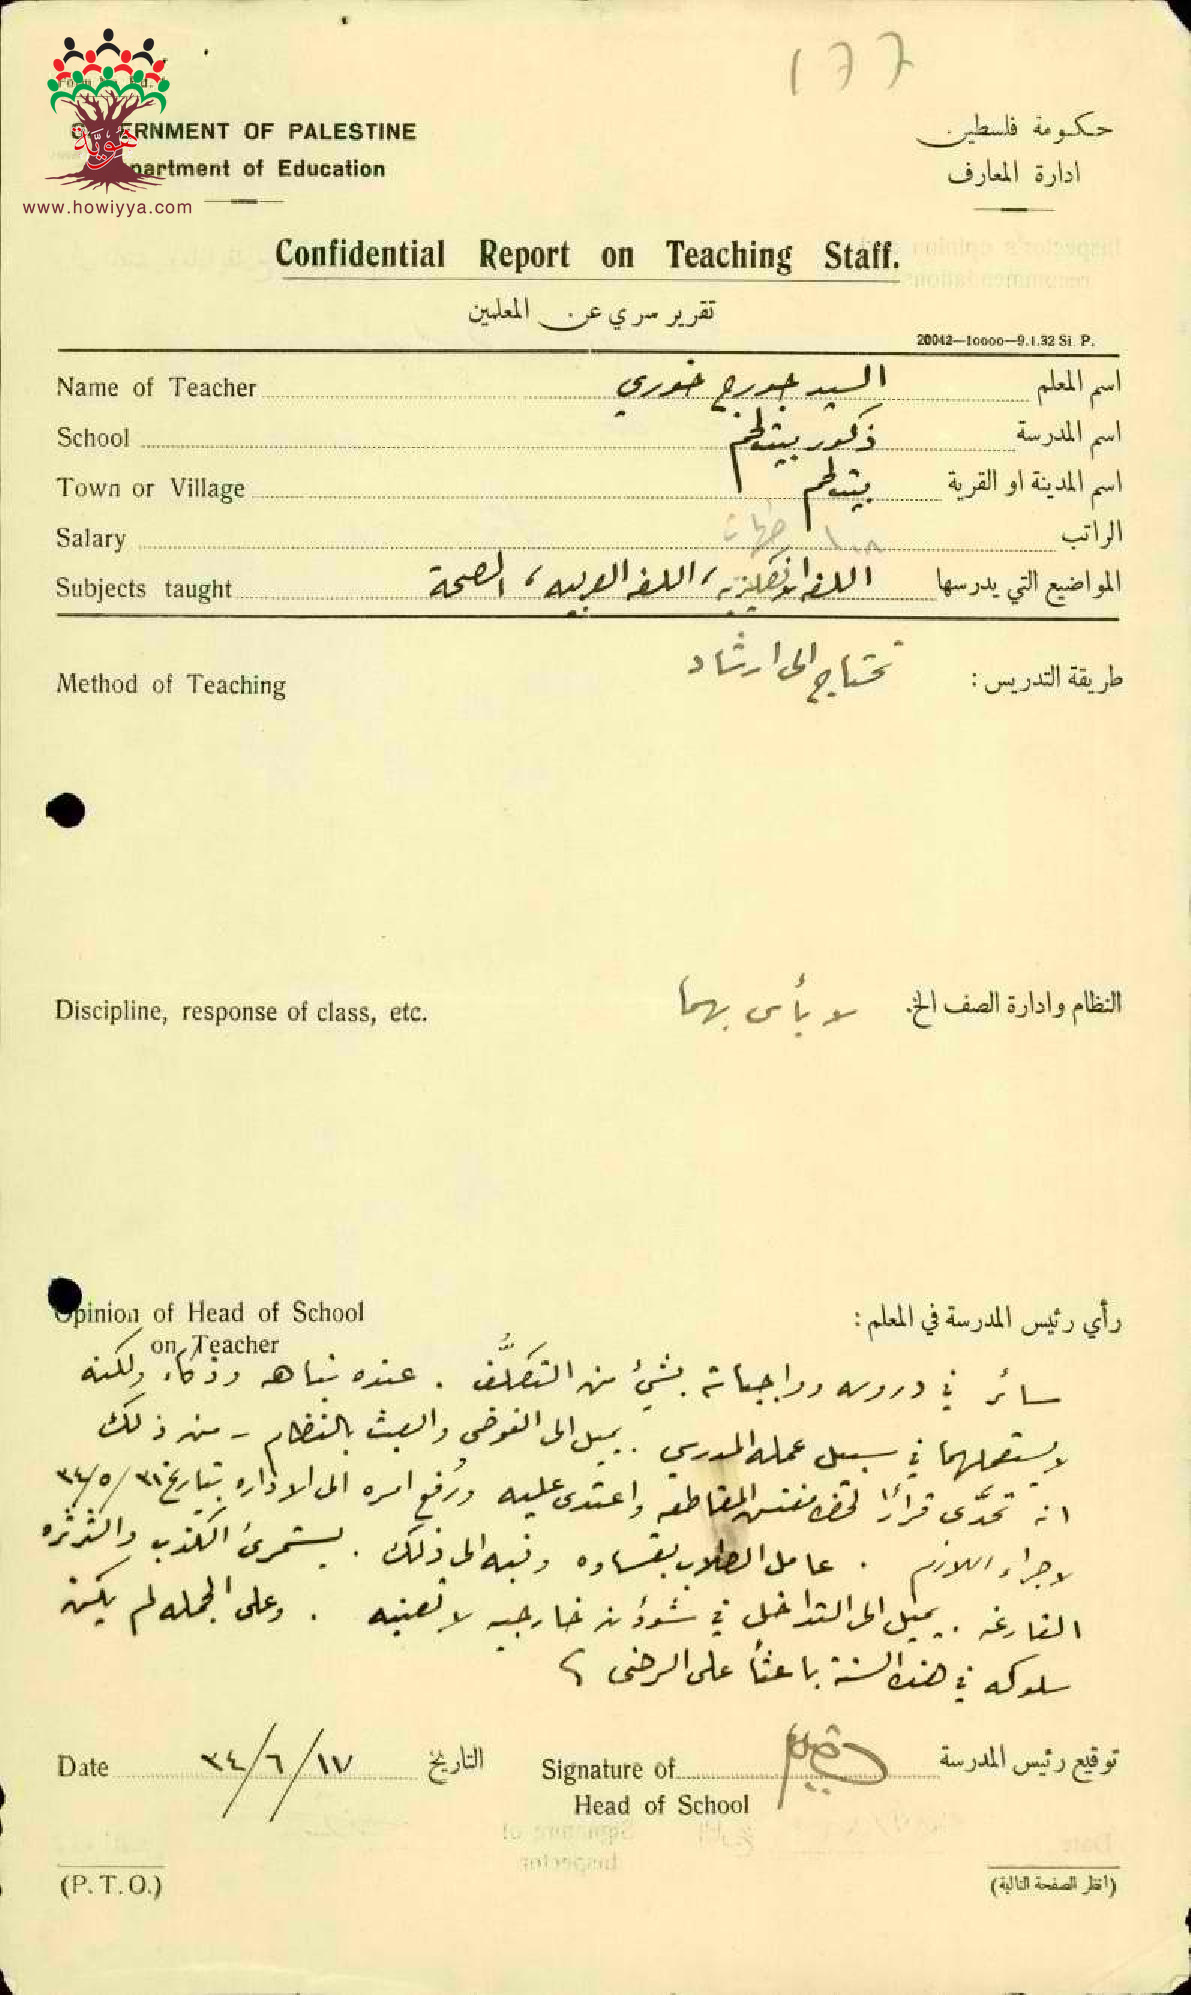 ١٦٦
GOVERNMENT OF PALESTINE
Department of Education
هويّة
www.howiyya.com
حكومة فلسطين
ادارة المعارف
Confidential Report on Teaching Staff.
تقرير سري عن المعلمين
20042—10000—9.1.32 Si. P.
Name of Teacher السيد جورج خوري اسم المعلم
School ذكور بيت لحم اسم المدرسة
Town or Village بيت لحم اسم المدينة او القرية
Salary الراتب
Subjects taught اللغة الانكليزية، اللغة العربية، الصحة المواضيع التي يدرسها
Method of Teaching تحتاج الى ارشاد طريقة التدريس :
Discipline, response of class, etc. لا بأس بهما النظام وادارة الصف الخ.
Opinion of Head of School رأي رئيس المدرسة في المعلم :
on Teacher
سائر في دروسه وواجباته بشيء من التكلُّف . عنده نباهه وذكاء ولكنه
لا يستعملهما في سبيل عمله المدرسي . يميل الى الفوضى والعبث بالنظام - من ذلك
انه تحدَّى قرارًا لحضرة مفتش المقاطعه واعتدى عليه ورُفع امره الى الاداره بتاريخ ٣١/٥/٣٤
لاجراء اللازم . عامل الطلاب بقساوه ونبه الى ذلك . يستمرئ الكذب والثرثره
الفارغه . يميل الى التداخل في شوؤن خارجيه لا تعنيه . وعلى الجمله لم يكن
سلوكه في هذه السنة باعثاً على الرضى
Date ١٧/٦/٣٤ التاريخ
Signature of توقيع رئيس المدرسة
Head of School
(P.T.O.) (انظر الصفحة التالية)